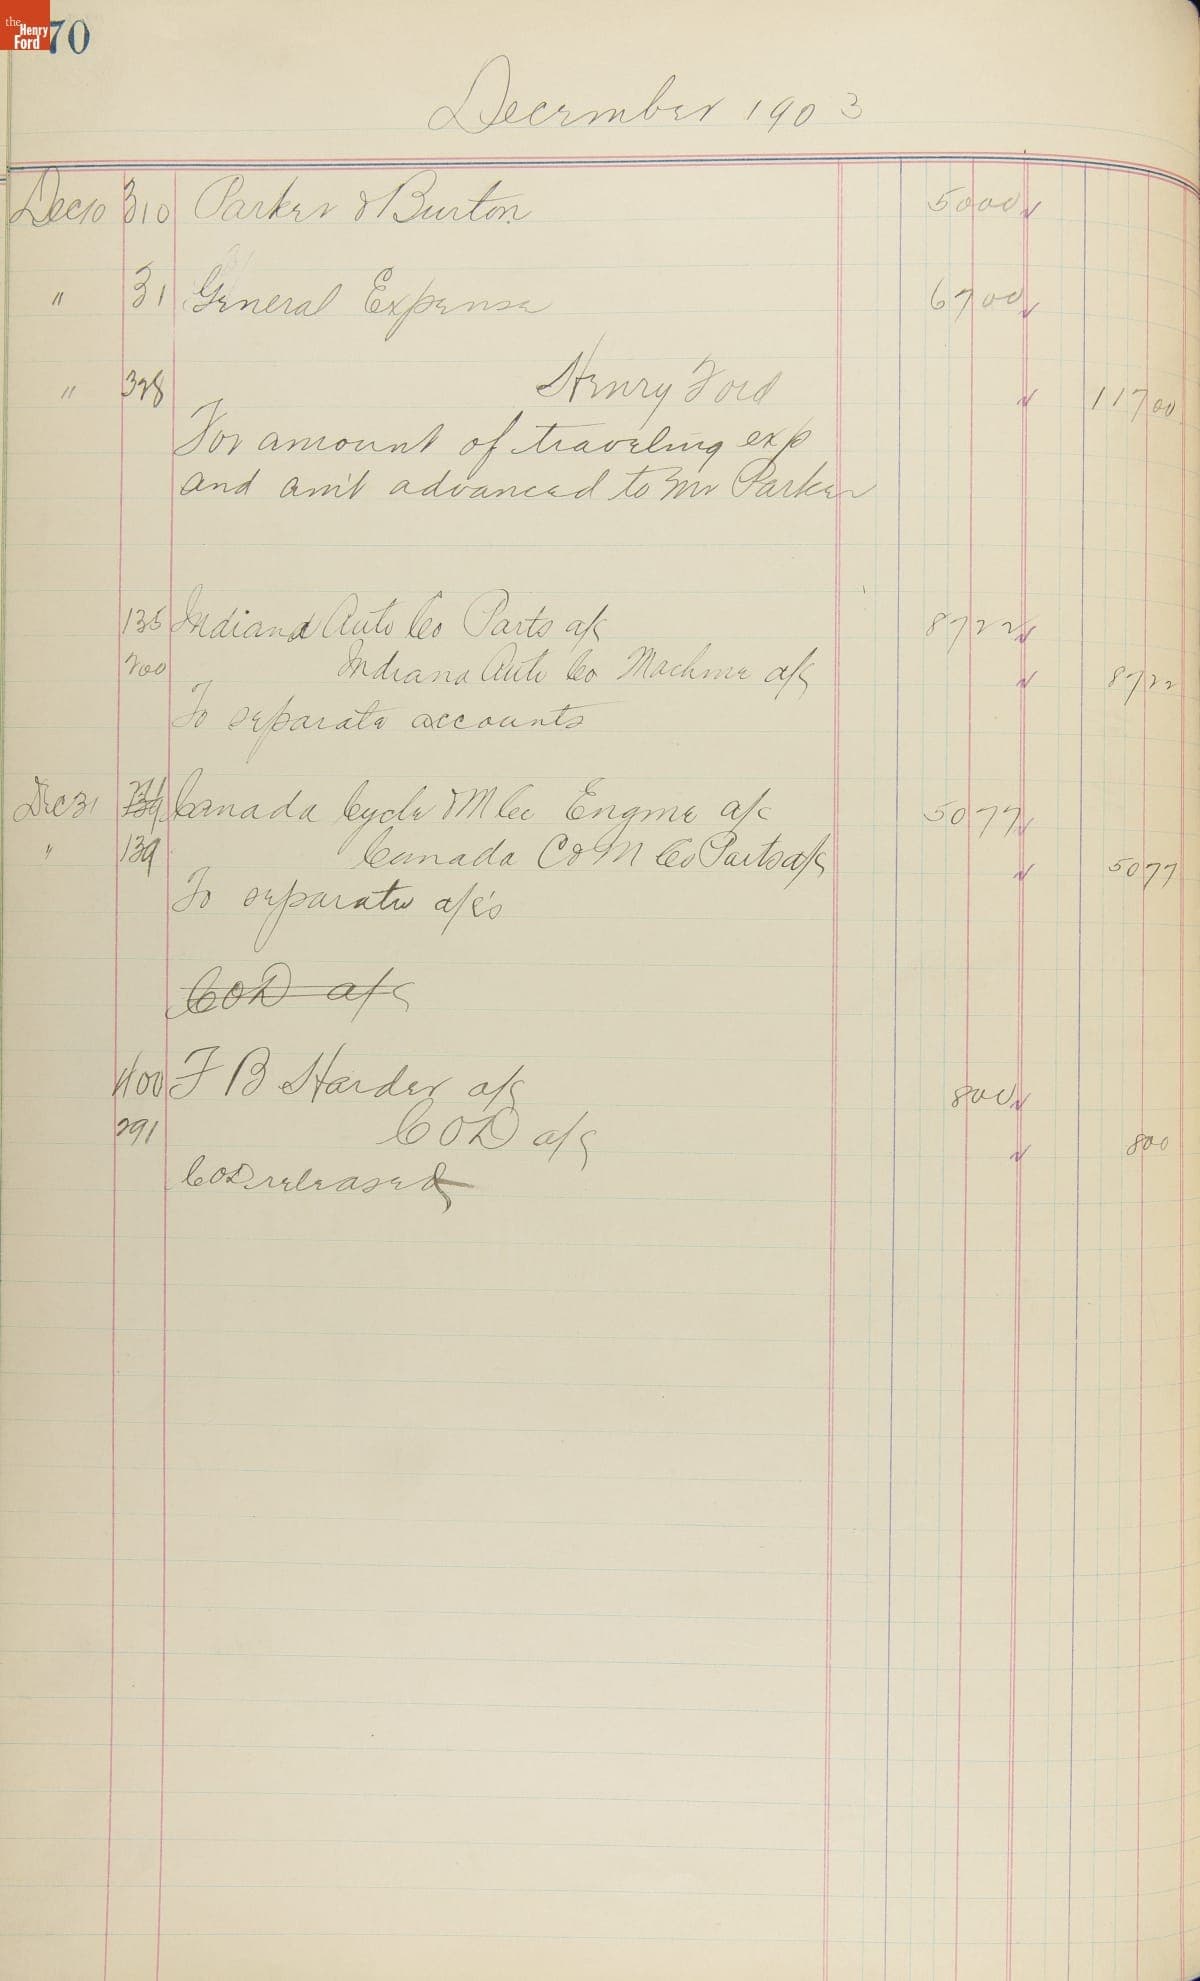 the Henry Ford
70
December 1903
Dec 10 310 Parker & Burton 50 00
" 31 General Expense 67 00
" 328 Henry Ford 117 00
For amount of traveling exp
and am't advanced to Mr Parker
135 Indiana Auto Co Parts a/c 87 22
200 Indiana Auto Co Machine a/c 87 22
To separate accounts
Dec 31 Canada Cycle & M Co Engine a/c 50 77
" 139 Canada C & M Co Parts a/c 50 77
To separate a/c's
COD a/c
400 F B Harder a/c 8 00
291 COD a/c 8 00
COD released